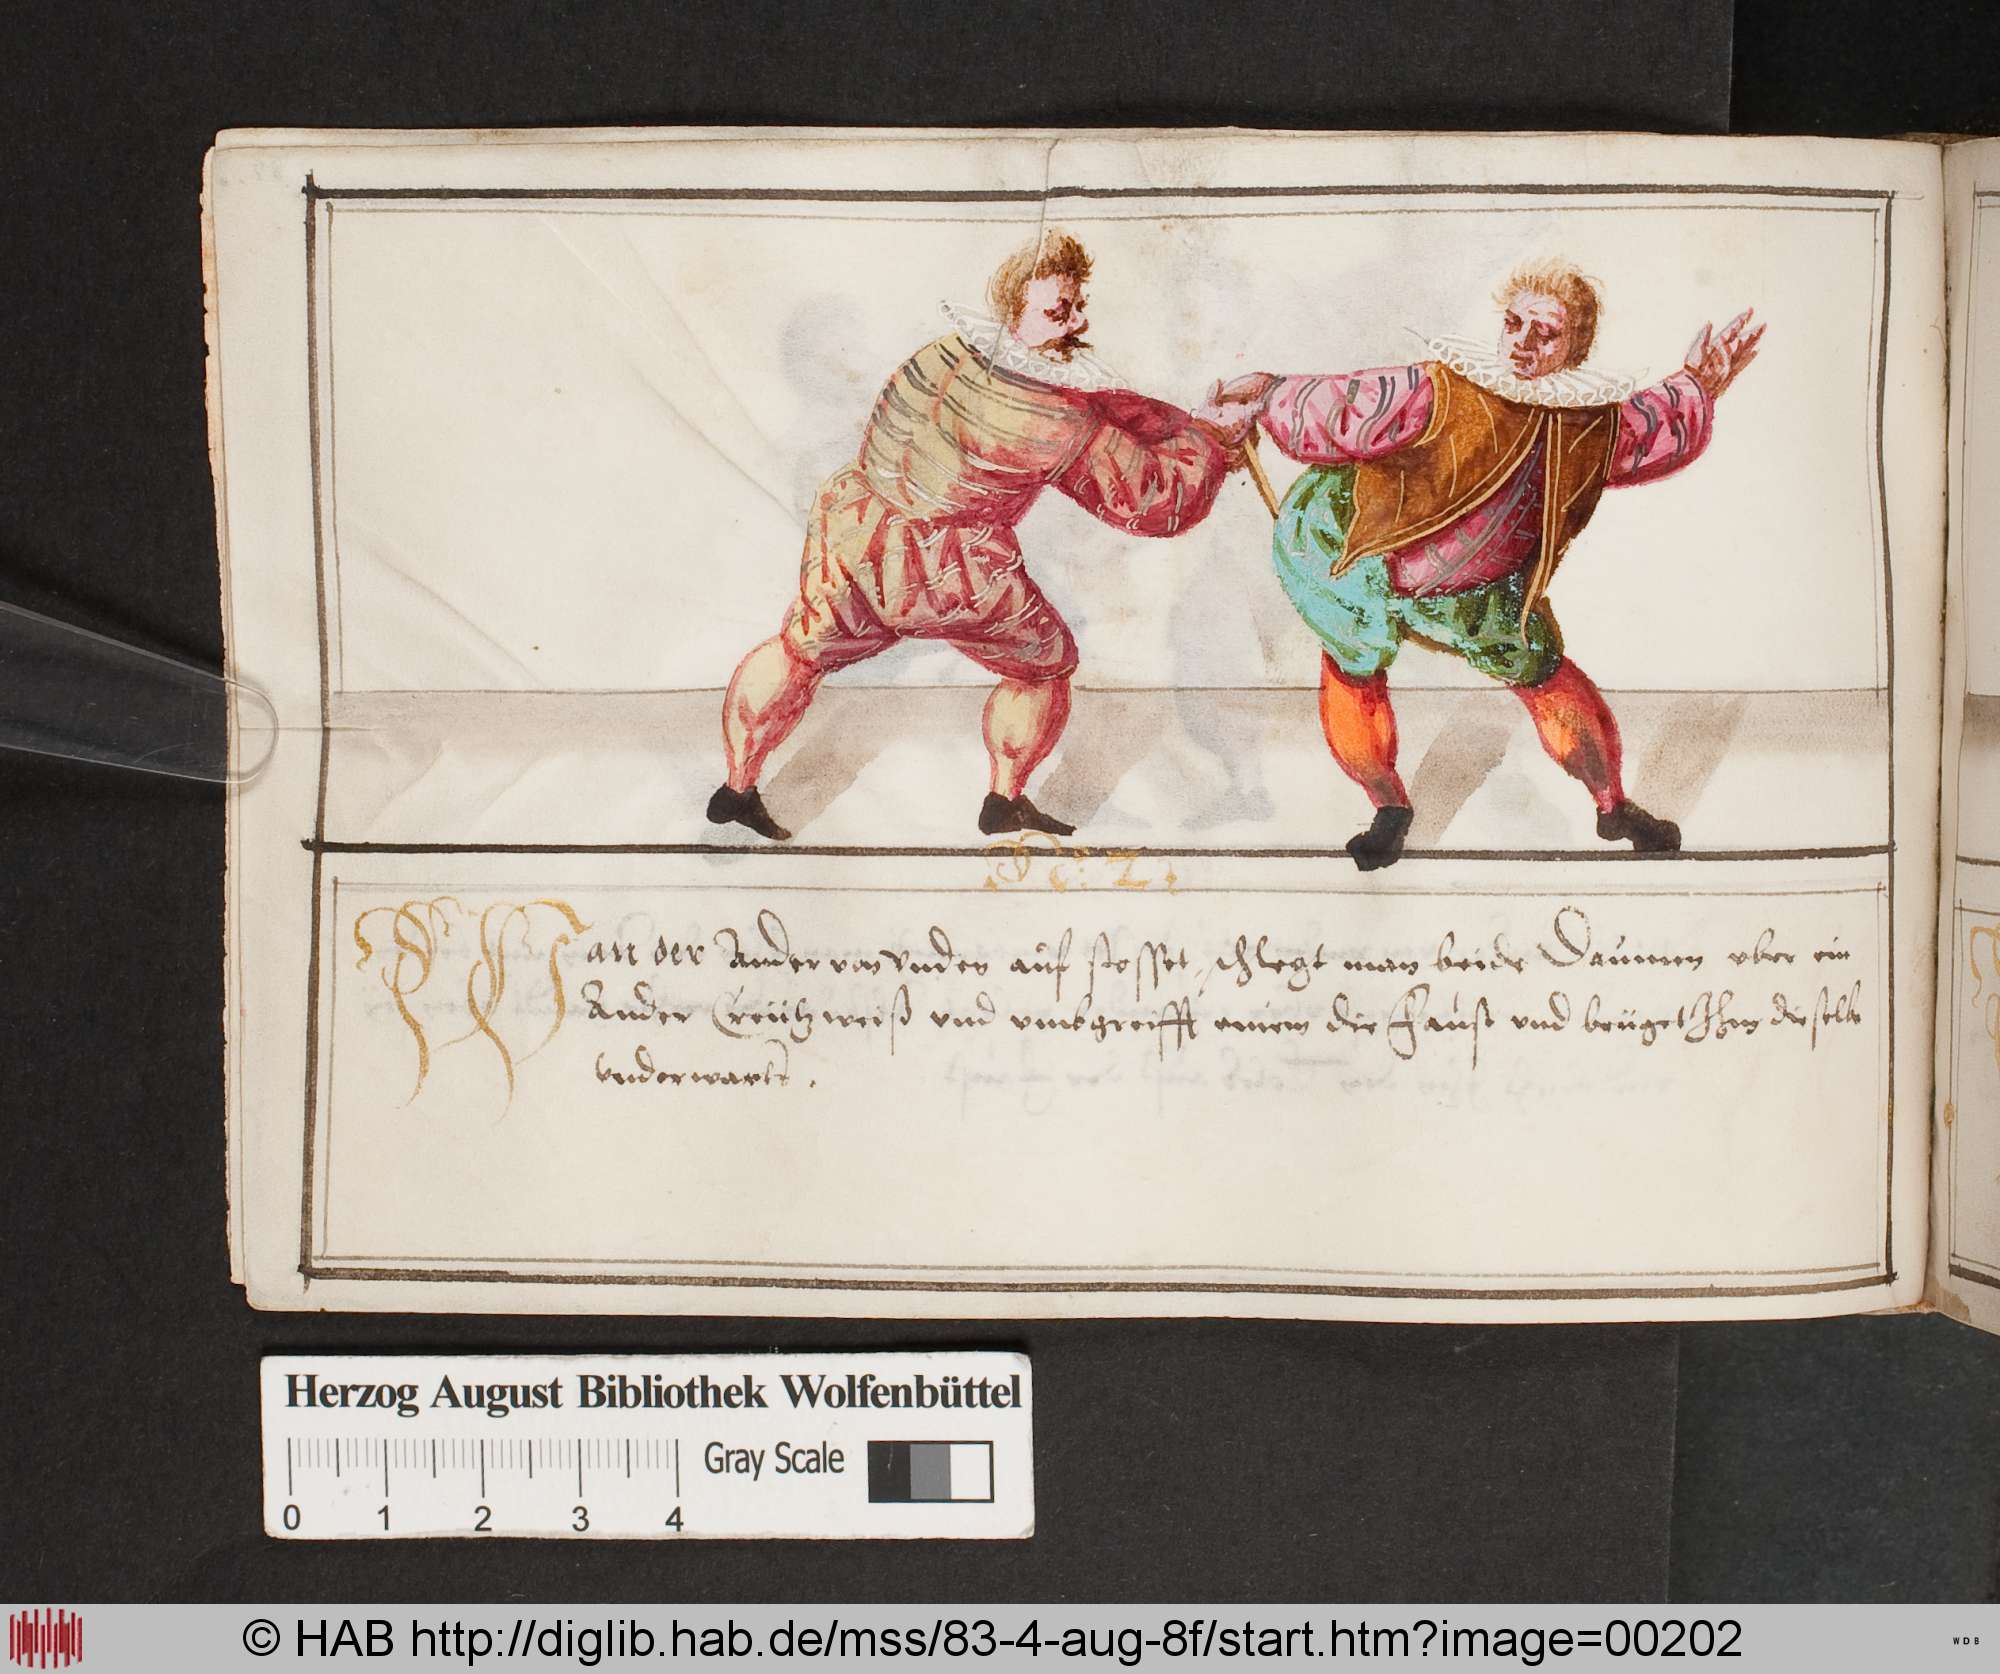 N: 2.
Wan der Ander von Unden auf stosset, schlegt man beide Daumen vber ein
Ander Creützweiß vnd vmbgreifft einem die Faust vnd beüget Ihm dieselb
vnderwarts.
Herzog August Bibliothek Wolfenbüttel
Gray Scale
0 1 2 3 4
© HAB http://diglib.hab.de/mss/83-4-aug-8f/start.htm?image=00202
WDB